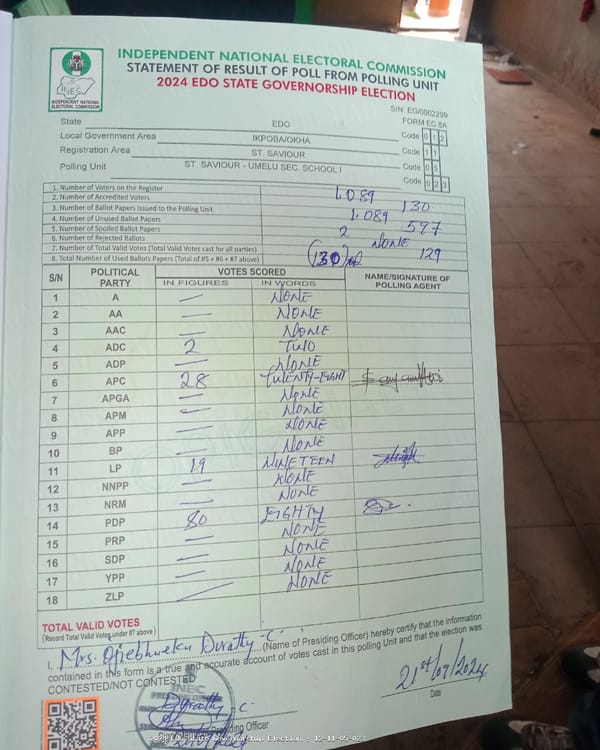 INDEPENDENT NATIONAL ELECTORAL COMMISSION
STATEMENT OF RESULT OF POLL FROM POLLING UNIT
2024 EDO STATE GOVERNORSHIP ELECTION
INEC
INDEPENDENT NATIONAL ELECTORAL COMMISSION
S/N: EG/0002299
FORM EC 8A
State EDO Code 0 1 2
Local Government Area IKPOBA/OKHA Code 1 1
Registration Area ST. SAVIOUR Code 0 5
Polling Unit ST. SAVIOUR - UMELU SEC. SCHOOL I Code 0 2 3
1. Number of Voters on the Register 1,089
2. Number of Accredited Voters 130
3. Number of Ballot Papers Issued to the Polling Unit 1,089
4. Number of Unused Ballot Papers 597
5. Number of Spoiled Ballot Papers 2
6. Number of Rejected Ballots NONE
7. Number of Total Valid Votes (Total Valid Votes cast for all parties) 129
8. Total Number of Used Ballots Papers (Total of #5 + #6 + #7 above) (130)
S/N POLITICAL PARTY VOTES SCORED NAME/SIGNATURE OF POLLING AGENT
IN FIGURES IN WORDS
1 A — NONE
2 AA — NONE
3 AAC — NONE
4 ADC 2 TWO
5 ADP — NONE
6 APC 28 TWENTY-EIGHT
7 APGA — NONE
8 APM — NONE
9 APP — NONE
10 BP — NONE
11 LP 19 NINETEEN
12 NNPP — NONE
13 NRM — NONE
14 PDP 80 EIGHTY
15 PRP — NONE
16 SDP — NONE
17 YPP — NONE
18 ZLP — NONE
TOTAL VALID VOTES
(Record Total Valid Votes under #7 above)
I, Mrs. Duratty C. (Name of Presiding Officer) hereby certify that the information
contained in this form is a true and accurate account of votes cast in this polling Unit and that the election was
CONTESTED/NOT CONTESTED
21st/09/2024
Date
INEC
Officer